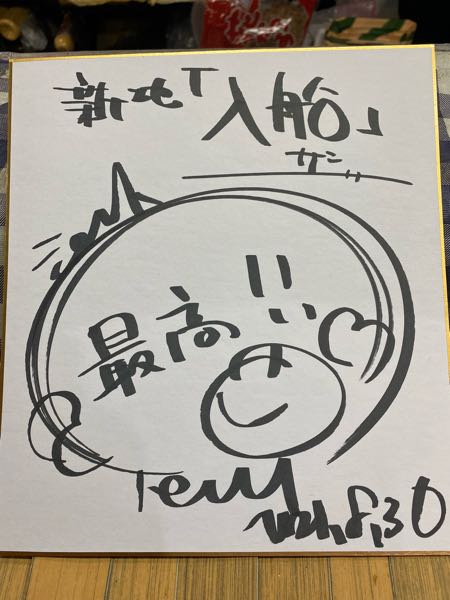 新地「入船」
サン
最高!!
Terry
2021.8.30